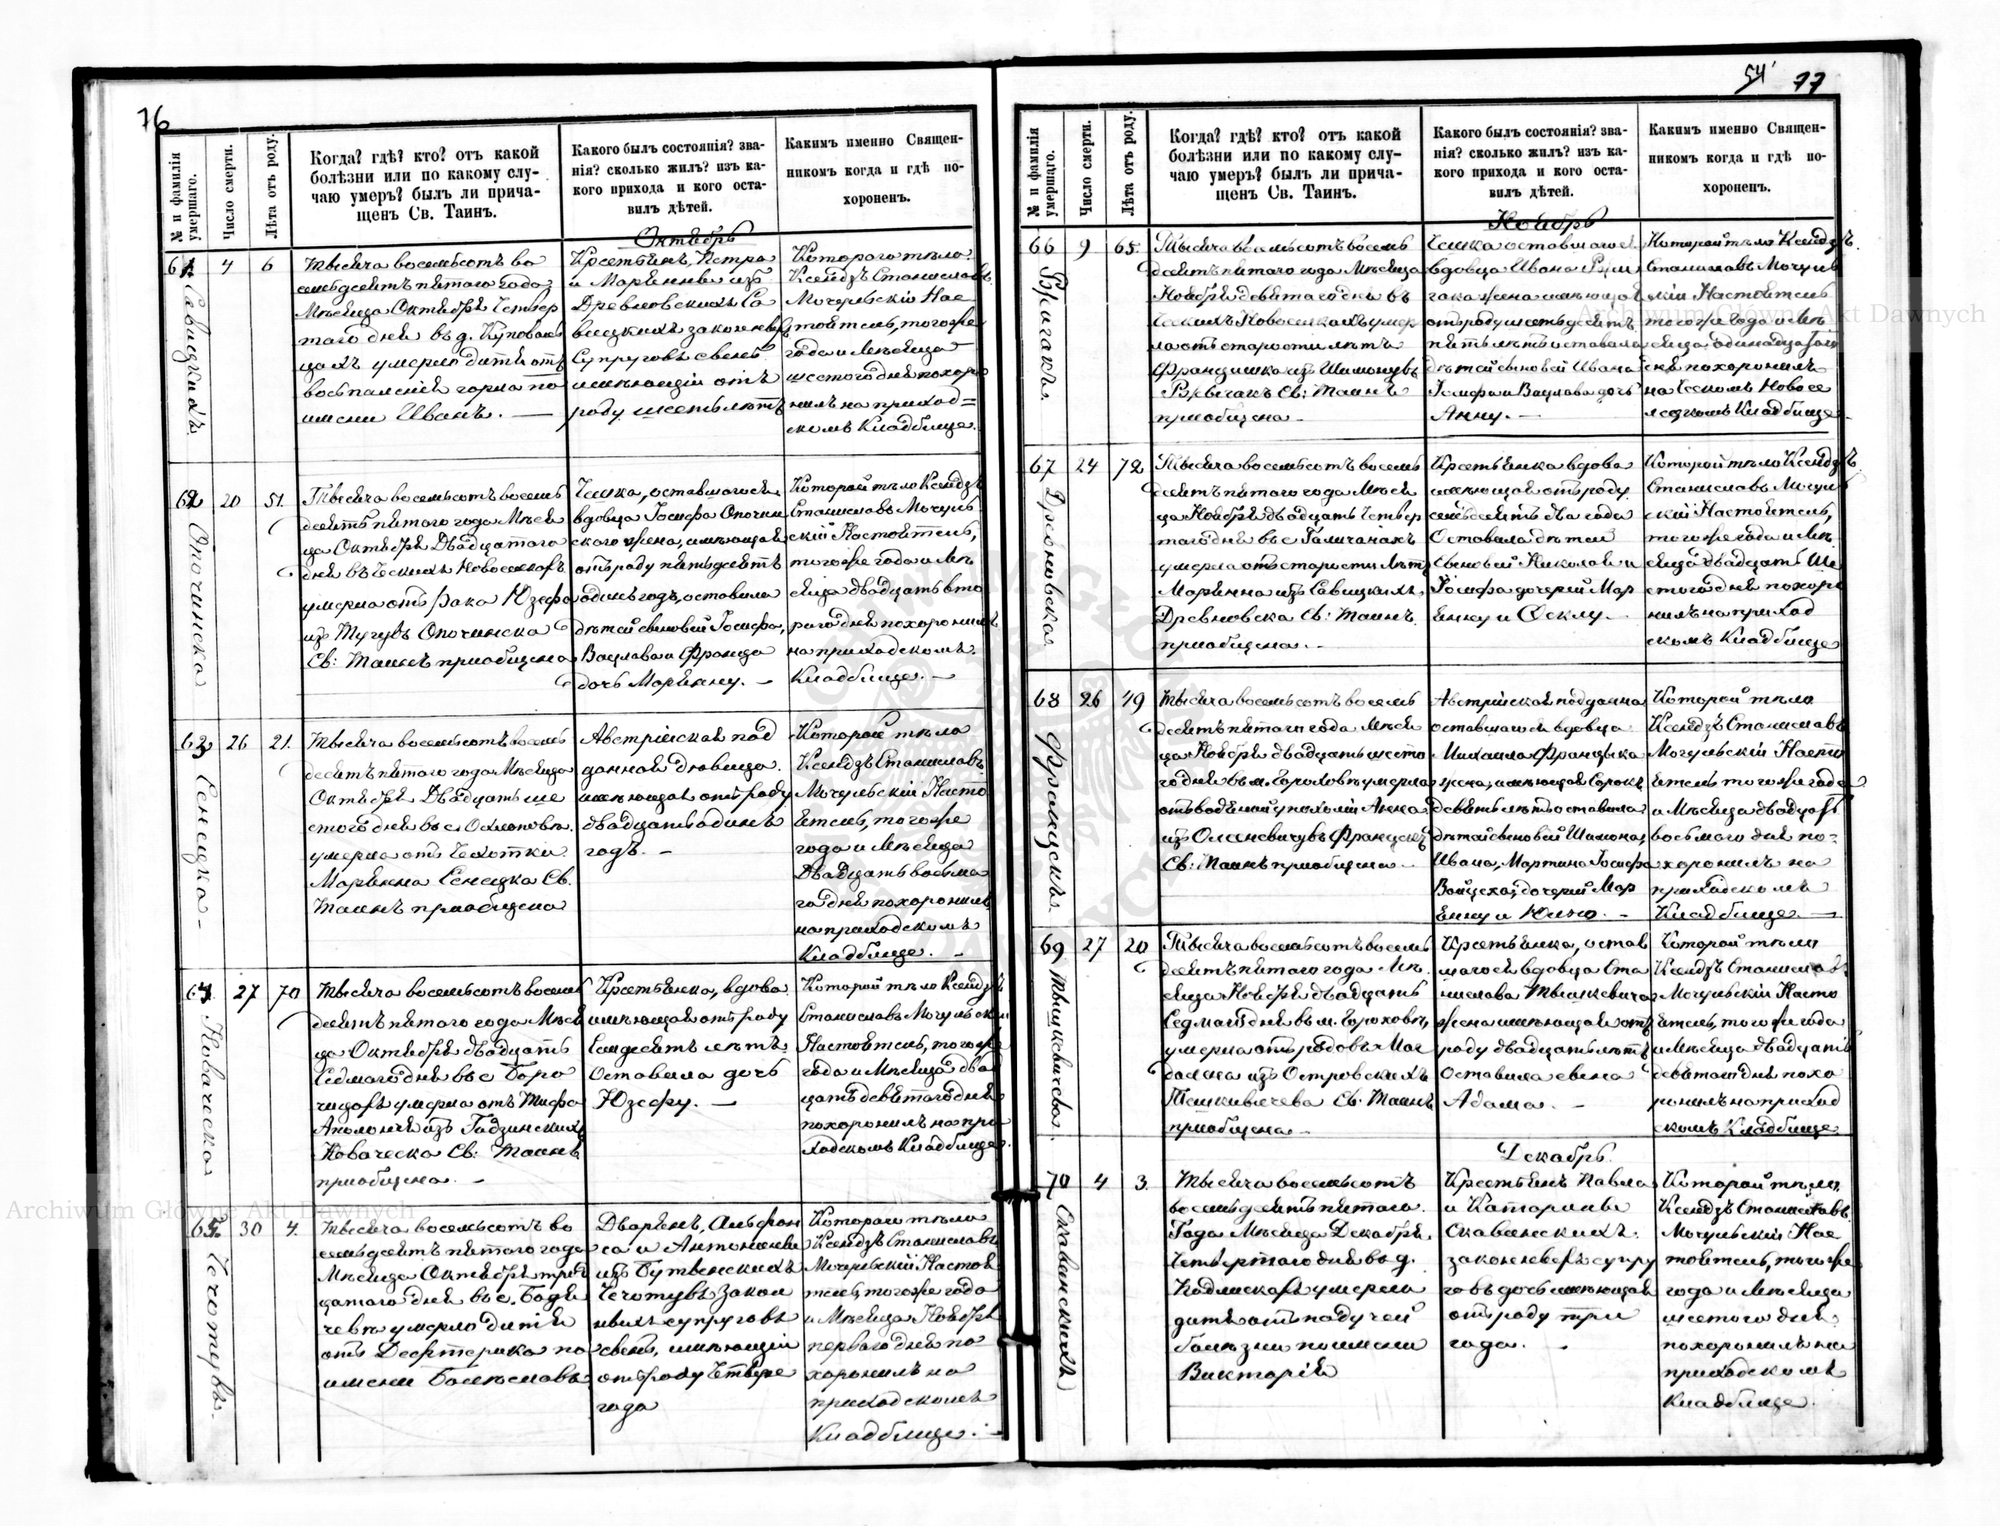 76
№ и фамилія умершаго.
Число смерти.
Лѣта отъ роду.
Когда? гдѣ? кто? отъ какой
болѣзни или по какому слу-
чаю умеръ? былъ ли прича-
щенъ Св. Таинъ.
Какого былъ состоянія? зва-
нія? сколько жилъ? изъ ка-
кого прихода и кого оста-
вилъ дѣтей.
Какимъ именно Священ-
никомъ когда и гдѣ по-
хороненъ.
Октябрь
61.
Савицкихъ
4
6
Тысяча восемьсотъ во
семьдесятъ пятого года
Мѣсяца Октября Четвер
таго дня въ д.
умерло дитя отъ
воспаленія горла по
имени Иванъ. —
Крестьянъ, Петра
и Маріянны изъ
Древновскихъ Са
вицкихъ законныхъ
Супруговъ сынъ
имѣющій отъ
роду шесть лѣтъ
Котораго тѣло
Ксендзъ Станиславъ
Мочульскій Нас
тоятель, того же
года и Мѣсяца
шестого дня похоро
нилъ на приход=
скомъ Кладбище.
62
Опочинска
20
51.
Тысяча восемьсотъ восемь
десятъ пятого года Мѣся
ца Октября Двадцатого
дня въ Ческихъ Новоселкахъ
умерла отъ рака Юзефа
из Опочинска
Св: Таинъ приобщена
Чешка, оставшогося
вдовца Іосифа Опочин
ского жена, имѣющая
отъ роду пятьдесятъ
одинъ годъ, оставила
дѣтей сыновей Іосифа,
Вацлава и Франца
дочь Маріянну. —
Которой тѣло Ксендзъ
Станиславъ Мочуль
скій Настоятель,
того же года и Мѣ
сяца двадцать вто
рого дня похоронилъ
на приходскомъ
Кладбище. —
63
Сенецка —
26
21.
Тысяча восемьсотъ восемь
десятъ пятого года Мѣсяца
Октября Двадцать ше
стого дня въ с.
умерла отъ Чахотки
Маріянна Сенецка Св.
Таинъ приобщена
Австрійская под
данная дѣвица.
имѣющая отъ роду
двадцать одинъ
годъ. —
Которой тѣло
Ксендзъ Станиславъ
Мочульскій Насто
ятель, того же
года и Мѣсяца
Двадцать восьма
го дня похоронилъ
на приходскомъ
Кладбище. —
64.
Ковачевска
27
70
Тысяча восемьсотъ восемь
десятъ пятого года Мѣся
ца Октября двадцать
Седмаго дня въ с.
умерла отъ Тифа
Аполонія изъ
Св: Таинъ
приобщена. —
Крестьянка, вдова
имѣющая отъ роду
Семдесятъ лѣтъ
Оставила дочь
Юзефу. —
Которой тѣло Ксендзъ
Станиславъ Мочульскій
Настоятель, того же
года и Мѣсяца два
цать девятого дня
похоронилъ на при
ходскомъ Кладбище.
65.
30
4.
Тысяча восемьсотъ во
семьдесятъ пятого года
Мѣсяца Октября трид
цатого дня въ с.
умерло дитя
отъ по
имени Болеславъ
Дворянъ, Альфон
са и Антонины
изъ
закон
ныхъ супруговъ
сынъ, имѣющій
отъ роду Четыре
года
Которого тѣло
Ксендзъ Станиславъ
Мочульскій Настоя
тель, того же года
и Мѣсяца Ноября
первого дня по
хоронилъ на
приходскомъ
Кладбище. —
54
77
№ и фамилія умершаго.
Число смерти.
Лѣта отъ роду.
Когда? гдѣ? кто? отъ какой
болѣзни или по какому слу-
чаю умеръ? былъ ли прича-
щенъ Св. Таинъ.
Какого былъ состоянія? зва-
нія? сколько жилъ? изъ ка-
кого прихода и кого оста-
вилъ дѣтей.
Какимъ именно Священ-
никомъ когда и гдѣ по-
хороненъ.
Ноябрь
66
9
65.
Тысяча восемьсотъ восемь
десятъ пятого года Мѣсяца
Ноября девятого дня въ
Ческихъ Новоселкахъ умер
ла отъ старости лѣтъ
Францишка изъ
Св: Таинъ
приобщена —
Чешка оставшогося
вдовца Ивана
жена имѣющая
отъ роду шестьдесятъ
пять лѣтъ оставила
дѣтей сыновей Ивана
Іосифа и Вацлава дочь
Анну. —
Которой тѣло Ксендзъ
Станиславъ Мочуль
скій Настоятель
того же года и Мѣ
сяца одинадцатого
дня похоронилъ
на Ческомъ Новосе
лецкомъ Кладбище —
67
Древновска
24
72
Тысяча восемьсотъ восемь
десятъ пятого года Мѣся
ца Ноября двадцать Четвер
таго дня въ с Галичанахъ
умерла отъ старости лѣтъ
Маріянна изъ Савицкихъ
Древновска Св: Таинъ
приобщена. —
Крестьянка вдова
имѣющая отъ роду
семьдесятъ два года
Оставила дѣтей
сыновей Николая и
Іосифа дочерей Мар
іянну и Феклу. —
Которой тѣло Ксендзъ
Станиславъ Мочуль
скій Настоятель,
того же года и Мѣ
сяца двадцать Ше
стого дня похоро
нилъ на приход
скомъ Кладбище
68
Францускъ.
26
49
Тысяча восемьсотъ восемь
десятъ пятого года Мѣся
ца Ноября двадцать шесто
го дня въ м. Гороховъ умерла
отъ водяной Анна
из
Св: Таинъ приобщена —
Австрійская подданна
оставшогося вдовца
Михаила
жена, имѣющая Сорокъ
девять лѣтъ оставила
дѣтей сыновей Шимона,
Ивана, Мартина Іосифа
Войцеха, дочерей Мар
іянну и Юлію. —
Которой тѣло
Ксендзъ Станиславъ
Мочульскій Насто
ятель того же года
и Мѣсяца двадцать
восьмого дня по-
хоронилъ на
приходскомъ
Кладбище —
69
Тышкевичева.
27
20
Тысяча восемьсотъ восемь
десятъ пятого года Мѣ
сяца Ноября двадцать
Седмаго дня въ м. Гороховъ,
умерла отъ родовъ
изъ Островскихъ
Св: Таинъ
приобщена —
Крестьянка, остав
шагося вдовца Ста
нислава Тышкевича
жена имѣющая отъ
роду двадцать лѣтъ
Оставила сына
Адама. —
Которой тѣло
Ксендзъ Станиславъ
Мочульскій Насто
ятель, того же года
и Мѣсяца двадцать
девятого дня похо
ронилъ на приход
скомъ Кладбище
Декабрь.
70
4
3.
Тысяча восемьсотъ
восемьдесятъ пятого
Года Мѣсяца Декабря
Четвертаго дня въ д.
умерла
дитя отъ падучей
болѣзни по имени
Викторія
Крестьянъ Павла
и Катарины
законныхъ супру
говъ дочь имѣющая
отъ роду три
года. —
Которой тѣло
Ксендзъ Станиславъ
Мочульскій Нас
тоятель, того же
года и Мѣсяца
шестого дня
похоронилъ на
приходскомъ
Кладбище.
Archiwum Główne Akt Dawnych
Archiwum Główne Akt Dawnych